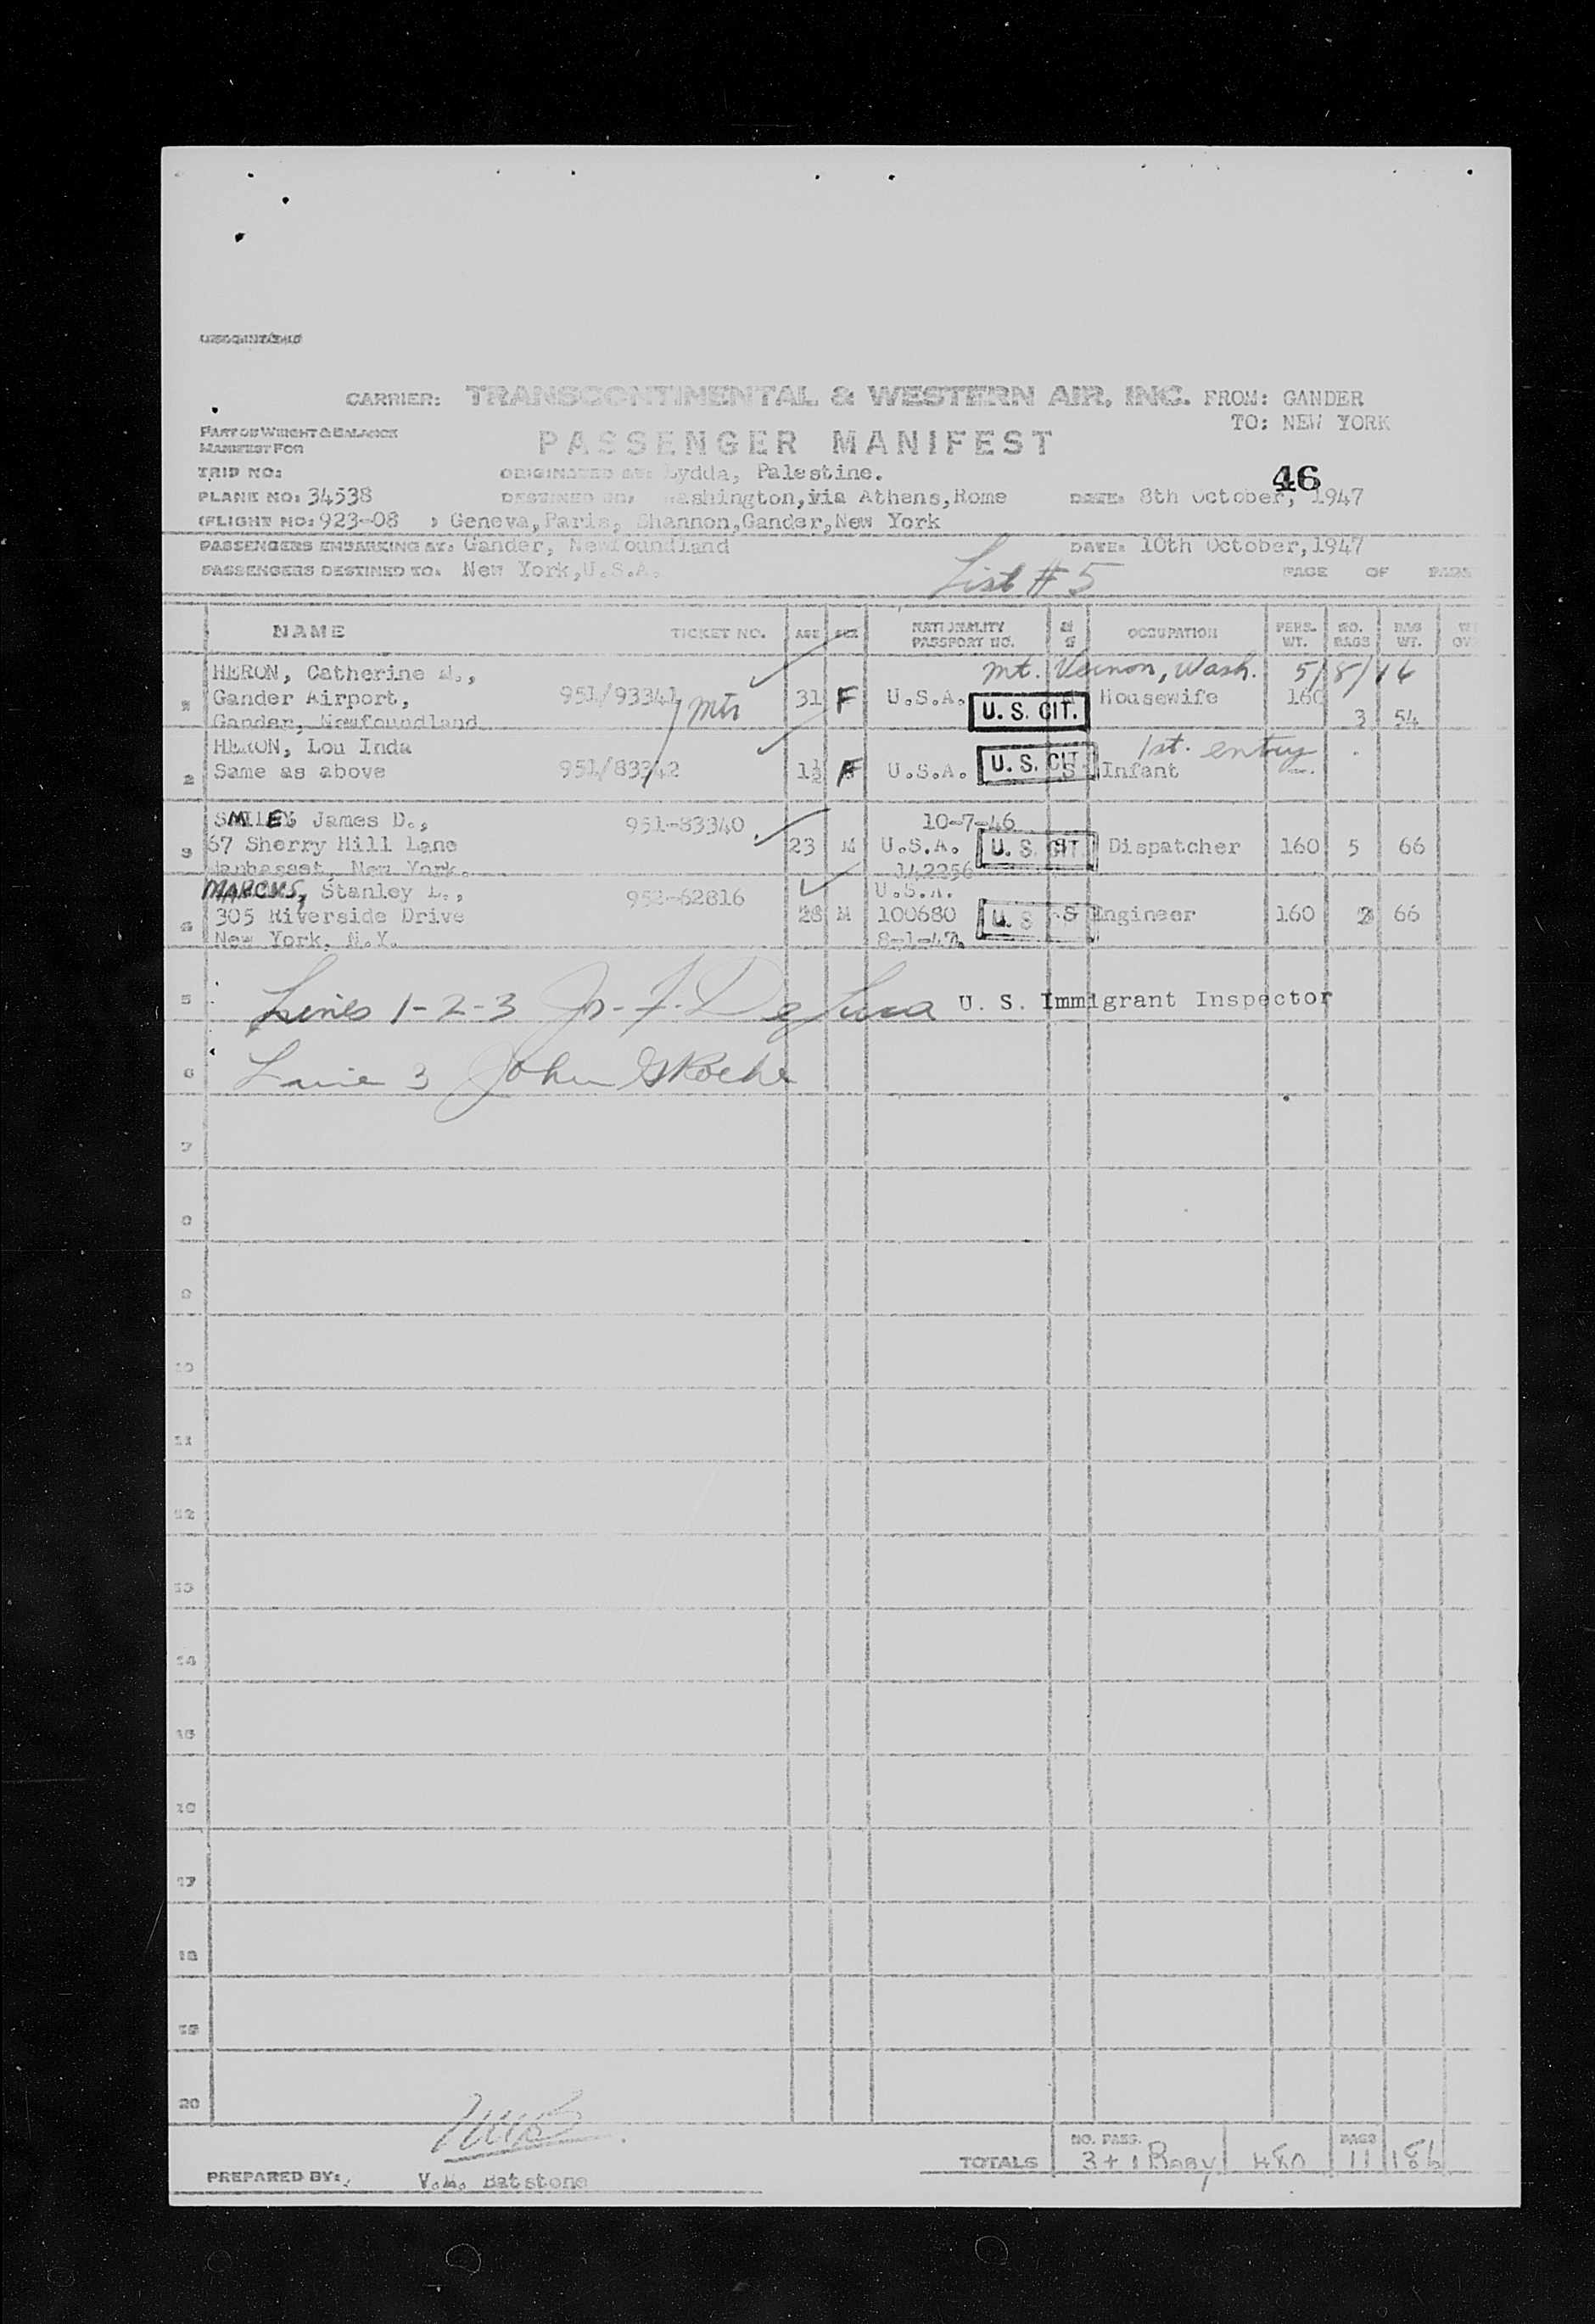 CARRIER: TRANSCONTINENTAL & WESTERN AIR, INC. FROM: GANDER
TO: NEW YORK
PART OF WEIGHT & BALANCE
MANIFEST FOR
PASSENGER MANIFEST
TRIP NO: ORIGINATED AT: Lydda, Palestine.
46
PLANE NO: 34538 DESTINED TO: Washington, via Athens, Rome DATE: 8th October, 1947
(FLIGHT NO: 923-08 ) Geneva, Paris, Shannon, Gander, New York
PASSENGERS EMBARKING AT: Gander, Newfoundland DATE: 10th October, 1947
PASSENGERS DESTINED TO: New York, U.S.A. List # 5 PAGE OF
NAME TICKET NO. AGE SEX NATIONALITY PASSPORT NO. OCCUPATION PERS. WT. NO. BAGS BAG WT.
Mt. Vernon, Wash. 5/8/16
HERON, Catherine
Gander Airport, 951/93341 Mts 31 F U.S.A. U. S. CIT. Housewife 160
Gander, Newfoundland 3 54
HERON, Lou Inda 1st. entry
2 Same as above 951/83342 1½ F U.S.A. U. S. CIT S Infant
SMILEY James D., 951-83340 10-7-46
3 67 Sherry Hill Lane 23 M U.S.A. U. S. CIT. Dispatcher 160 5 66
Manhasset, New York. 142256
MARCUS, Stanley L., 952-62816 U.S.A.
305 Riverside Drive 28 M 100680 U. S S Engineer 160 3 66
New York, N.Y. 8-1-47
5 Lines 1-2-3 U. S. Immigrant Inspector
6 Line 3 John G Roche
7
8
9
10
11
12
13
14
15
16
17
18
19
20
NO. PASS. BAGS
TOTALS 3 + 1 Baby 480 11 186
PREPARED BY: Batstone